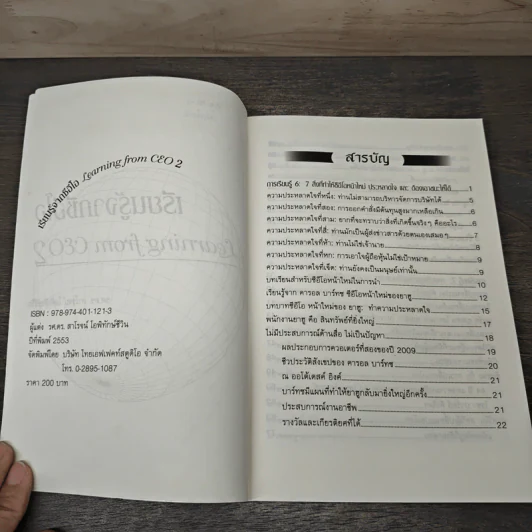 เรียนรู้จากซีอีโอ Learning from CEO 2
ISBN : 978-974-401-121-3
ผู้แต่ง รศ.ดร. สาโรจน์ โอพิทักษ์ชีวิน
ปีที่พิมพ์ 2553
จัดพิมพ์โดย บริษัท ไทยเอฟเฟคท์สตูดิโอ จำกัด
โทร. 0-2895-1087
ราคา 200 บาท
สารบัญ
การเรียนรู้ 6: 7 สิ่งที่ทำให้ซีอีโอหน้าใหม่ ประหลาดใจ และ ต้องเอาชนะให้ได้ 1
ความประหลาดใจที่หนึ่ง: ท่านไม่สามารถบริหารจัดการบริษัทได้ 5
ความประหลาดใจที่สอง: การออกคำสั่งมีต้นทุนสูงมากเหลือเกิน 6
ความประหลาดใจที่สาม: ยากที่จะทราบว่าสิ่งที่เกิดขึ้นจริงๆ คืออะไร 6
ความประหลาดใจที่สี่: ท่านมักเป็นผู้ส่งข่าวสารด้วยตนเองเสมอๆ 7
ความประหลาดใจที่ห้า: ท่านไม่ใช่เจ้านาย 8
ความประหลาดใจที่หก: การเอาใจผู้ถือหุ้นไม่ใช่เป้าหมาย 9
ความประหลาดใจที่เจ็ด: ท่านยังคงเป็นมนุษย์เท่านั้น 9
บทเรียนสำหรับซีอีโอหน้าใหม่ในการนำ 10
เรียนรู้จาก คารอล บาร์ทซ ซีอีโอหน้าใหม่ของยาฮู 12
บทบาทซีอีโอ หน้าใหม่ของ ยาฮู: ทำความประหลาดใจ 15
พนักงานยาฮู คือ สินทรัพย์ที่ยิ่งใหญ่ 17
ไม่มีประสบการณ์ด้านสื่อ ไม่เป็นปัญหา 18
ผลประกอบการควอเตอร์ที่สองของปี 2009 19
ชีวประวัติสังเขปของ คารอล บาร์ทซ 21
ณ ออโต้เดสค์ อิงค์ 21
บาร์ทซมีแผนที่ทำให้ยาฮูกลับมายิ่งใหญ่อีกครั้ง 21
ประสบการณ์งานอาชีพ 21
รางวัลและเกียรติยศที่ได้ 22